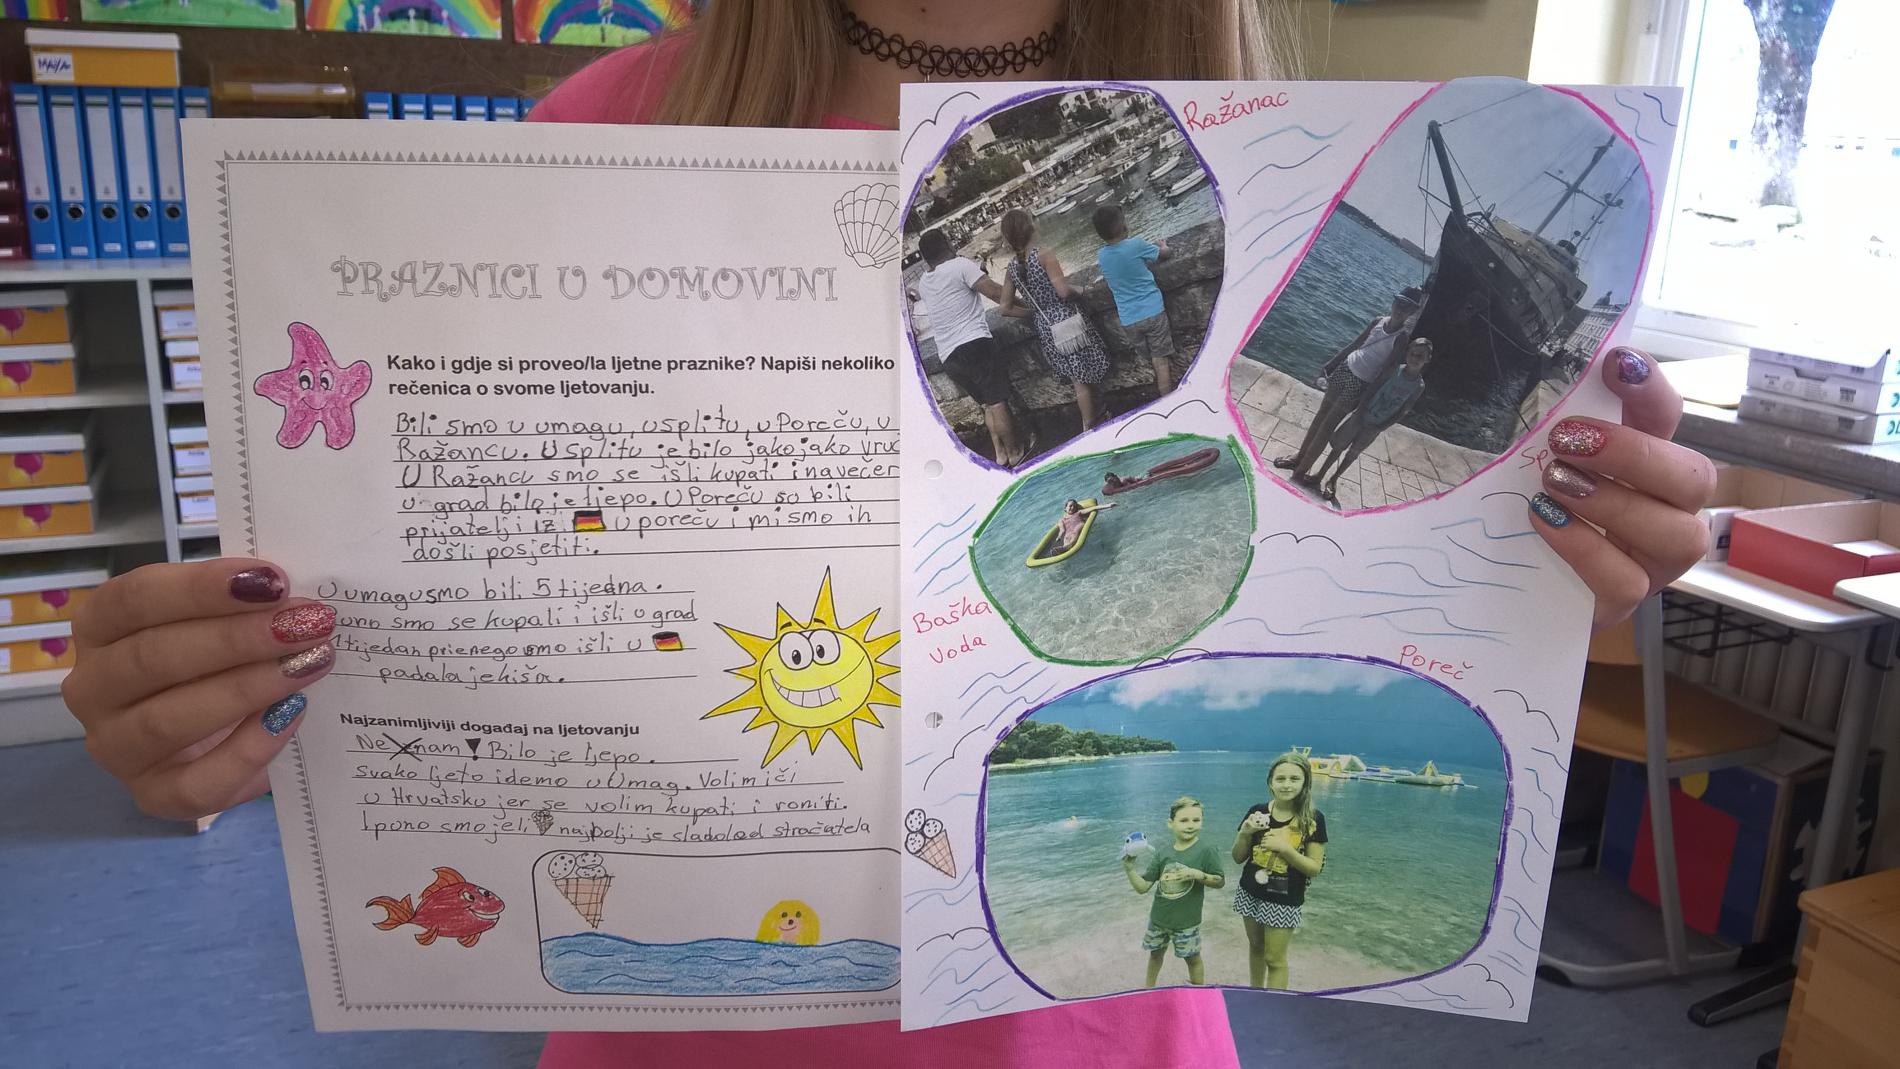 PRAZNICI U DOMOVINI
Kako i gdje si proveo/la ljetne praznike? Napiši nekoliko
rečenica o svome ljetovanju.
Bili smo u umagu, u splitu, u Poreču, u
Ražancu. U splitu je bilo jako jako vruć
U Ražancu smo se išli kupati i navečer
u grad bilo je ljepo. U Poreču so bili
prijatelji iz u poreču i mi smo ih
došli posjetiti.
U umagu smo bili 5 tijedna.
puno smo se kupali i išli u grad
1 tijedan prije nego smo išli u
padala je kiša.
Najzanimljiviji događaj na ljetovanju
Ne znam! Bilo je ljepo.
svako ljeto idemo u Umag. Volim ići
u Hrvatsku jer se volim kupati i roniti.
I puno smo jeli najbolji je sladoled stračatela
Ražanac
Sp
Baška
Voda
Poreč